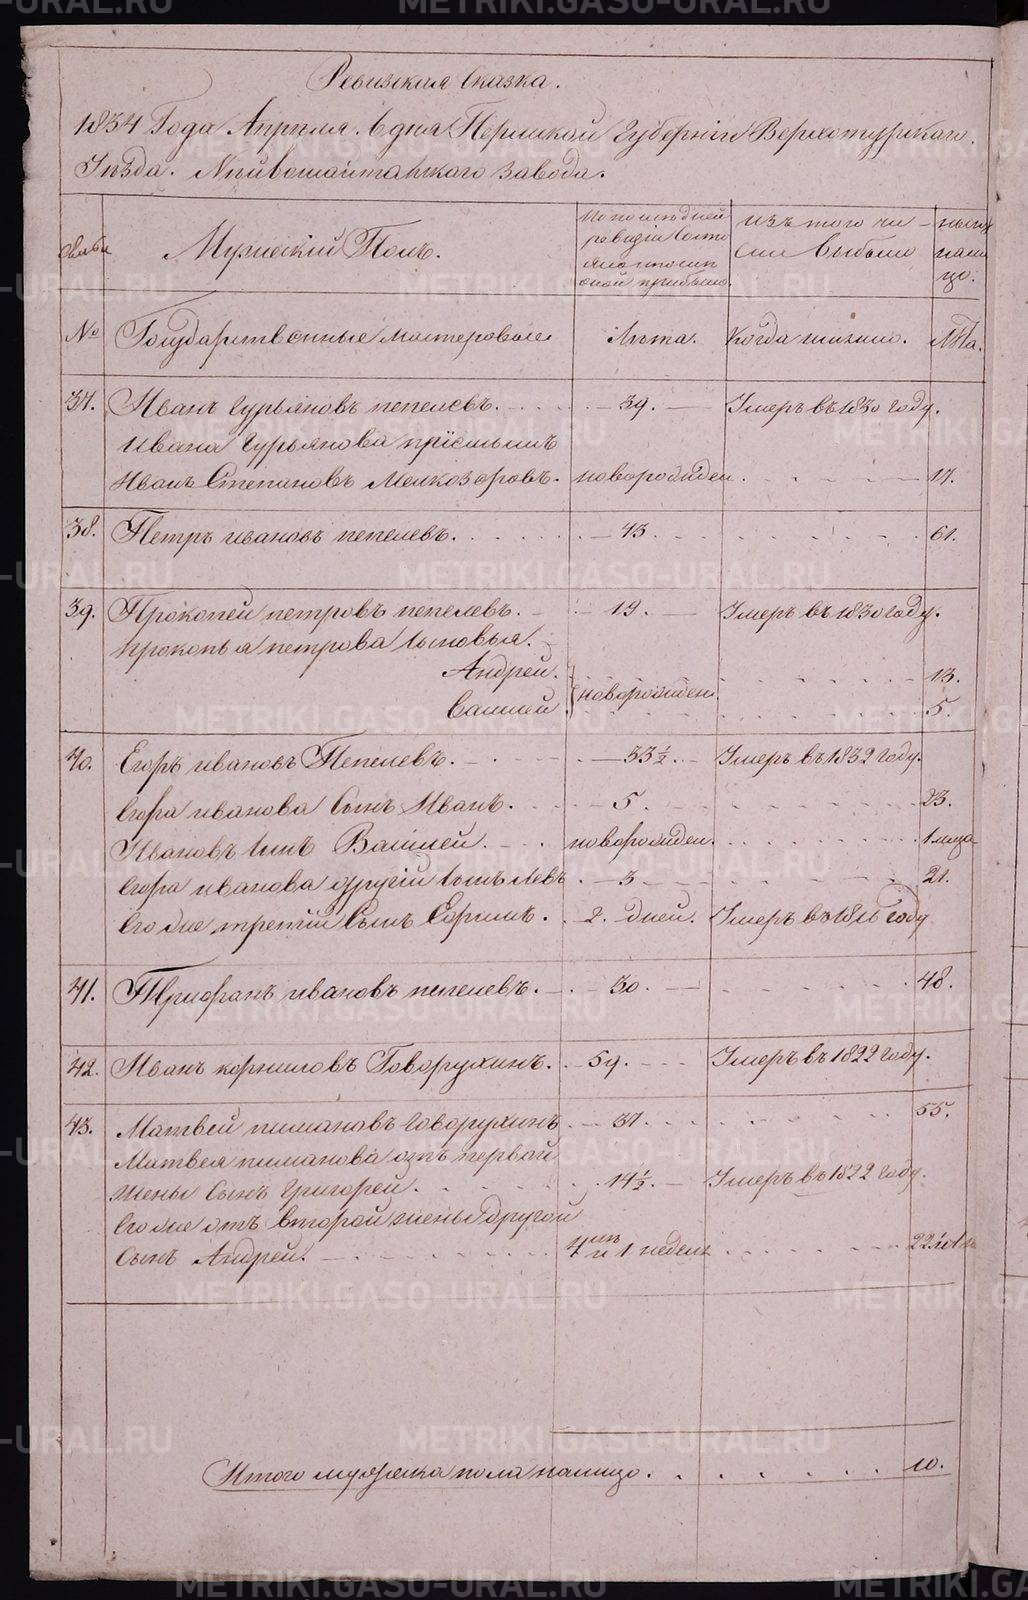 Ревизская Сказка.
1834 Года Апреля 6 дня Пермской Губернiи Верхотурскаго
Уѣзда. Нейвошайтанскаго завода.
Мужескiй Полъ.
По послѣдней ревизiи состояло и послѣ оной прибыло.
изъ того числа выбыло
ныне на лицо.
№ Государственные мастеровые Лѣта. Когда имянно. Лѣта.
37. Иванъ Гурьяновъ пепелевъ. 39. Умеръ въ 1830 году.
Ивана Гурьянова прiемышъ
Иванъ Степановъ Мелкозеровъ. новорожден. 17.
38. Петръ ивановъ пепелевъ. 43. 61.
39. Прокопей петровъ пепелевъ. 19. Умеръ въ 1830 году.
прокопья петрова сыновья.
Андрей. 13.
новорожден.
Василей 5.
40. Егоръ ивановъ Пепелевъ. 33½. Умеръ въ 1832 году.
Егора иванова Сынъ Иванъ. 5. 23.
Ивановъ сынъ Василей. новорожден. 1 мца
Егора иванова другiй сынъ Левъ 3 21.
Его же третiй Сынъ 2. дней. Умеръ въ 1816 году
41. Трифанъ ивановъ пепелевъ. 30. 48.
42. Иванъ корниловъ Говорухинъ. 59. Умеръ въ 1822 году.
43. Матвей пимановъ Говорухинъ 37. 55.
Матвея пиманова отъ первой
жены Сынъ Григорей. 14½. Умеръ въ 1822 году.
Его же отъ второй жены другой
Сынъ Андрей. 4 и 1 недель 22
Итого мужеска пола налицо. 10.
METRIKI.GASO-URAL.RU